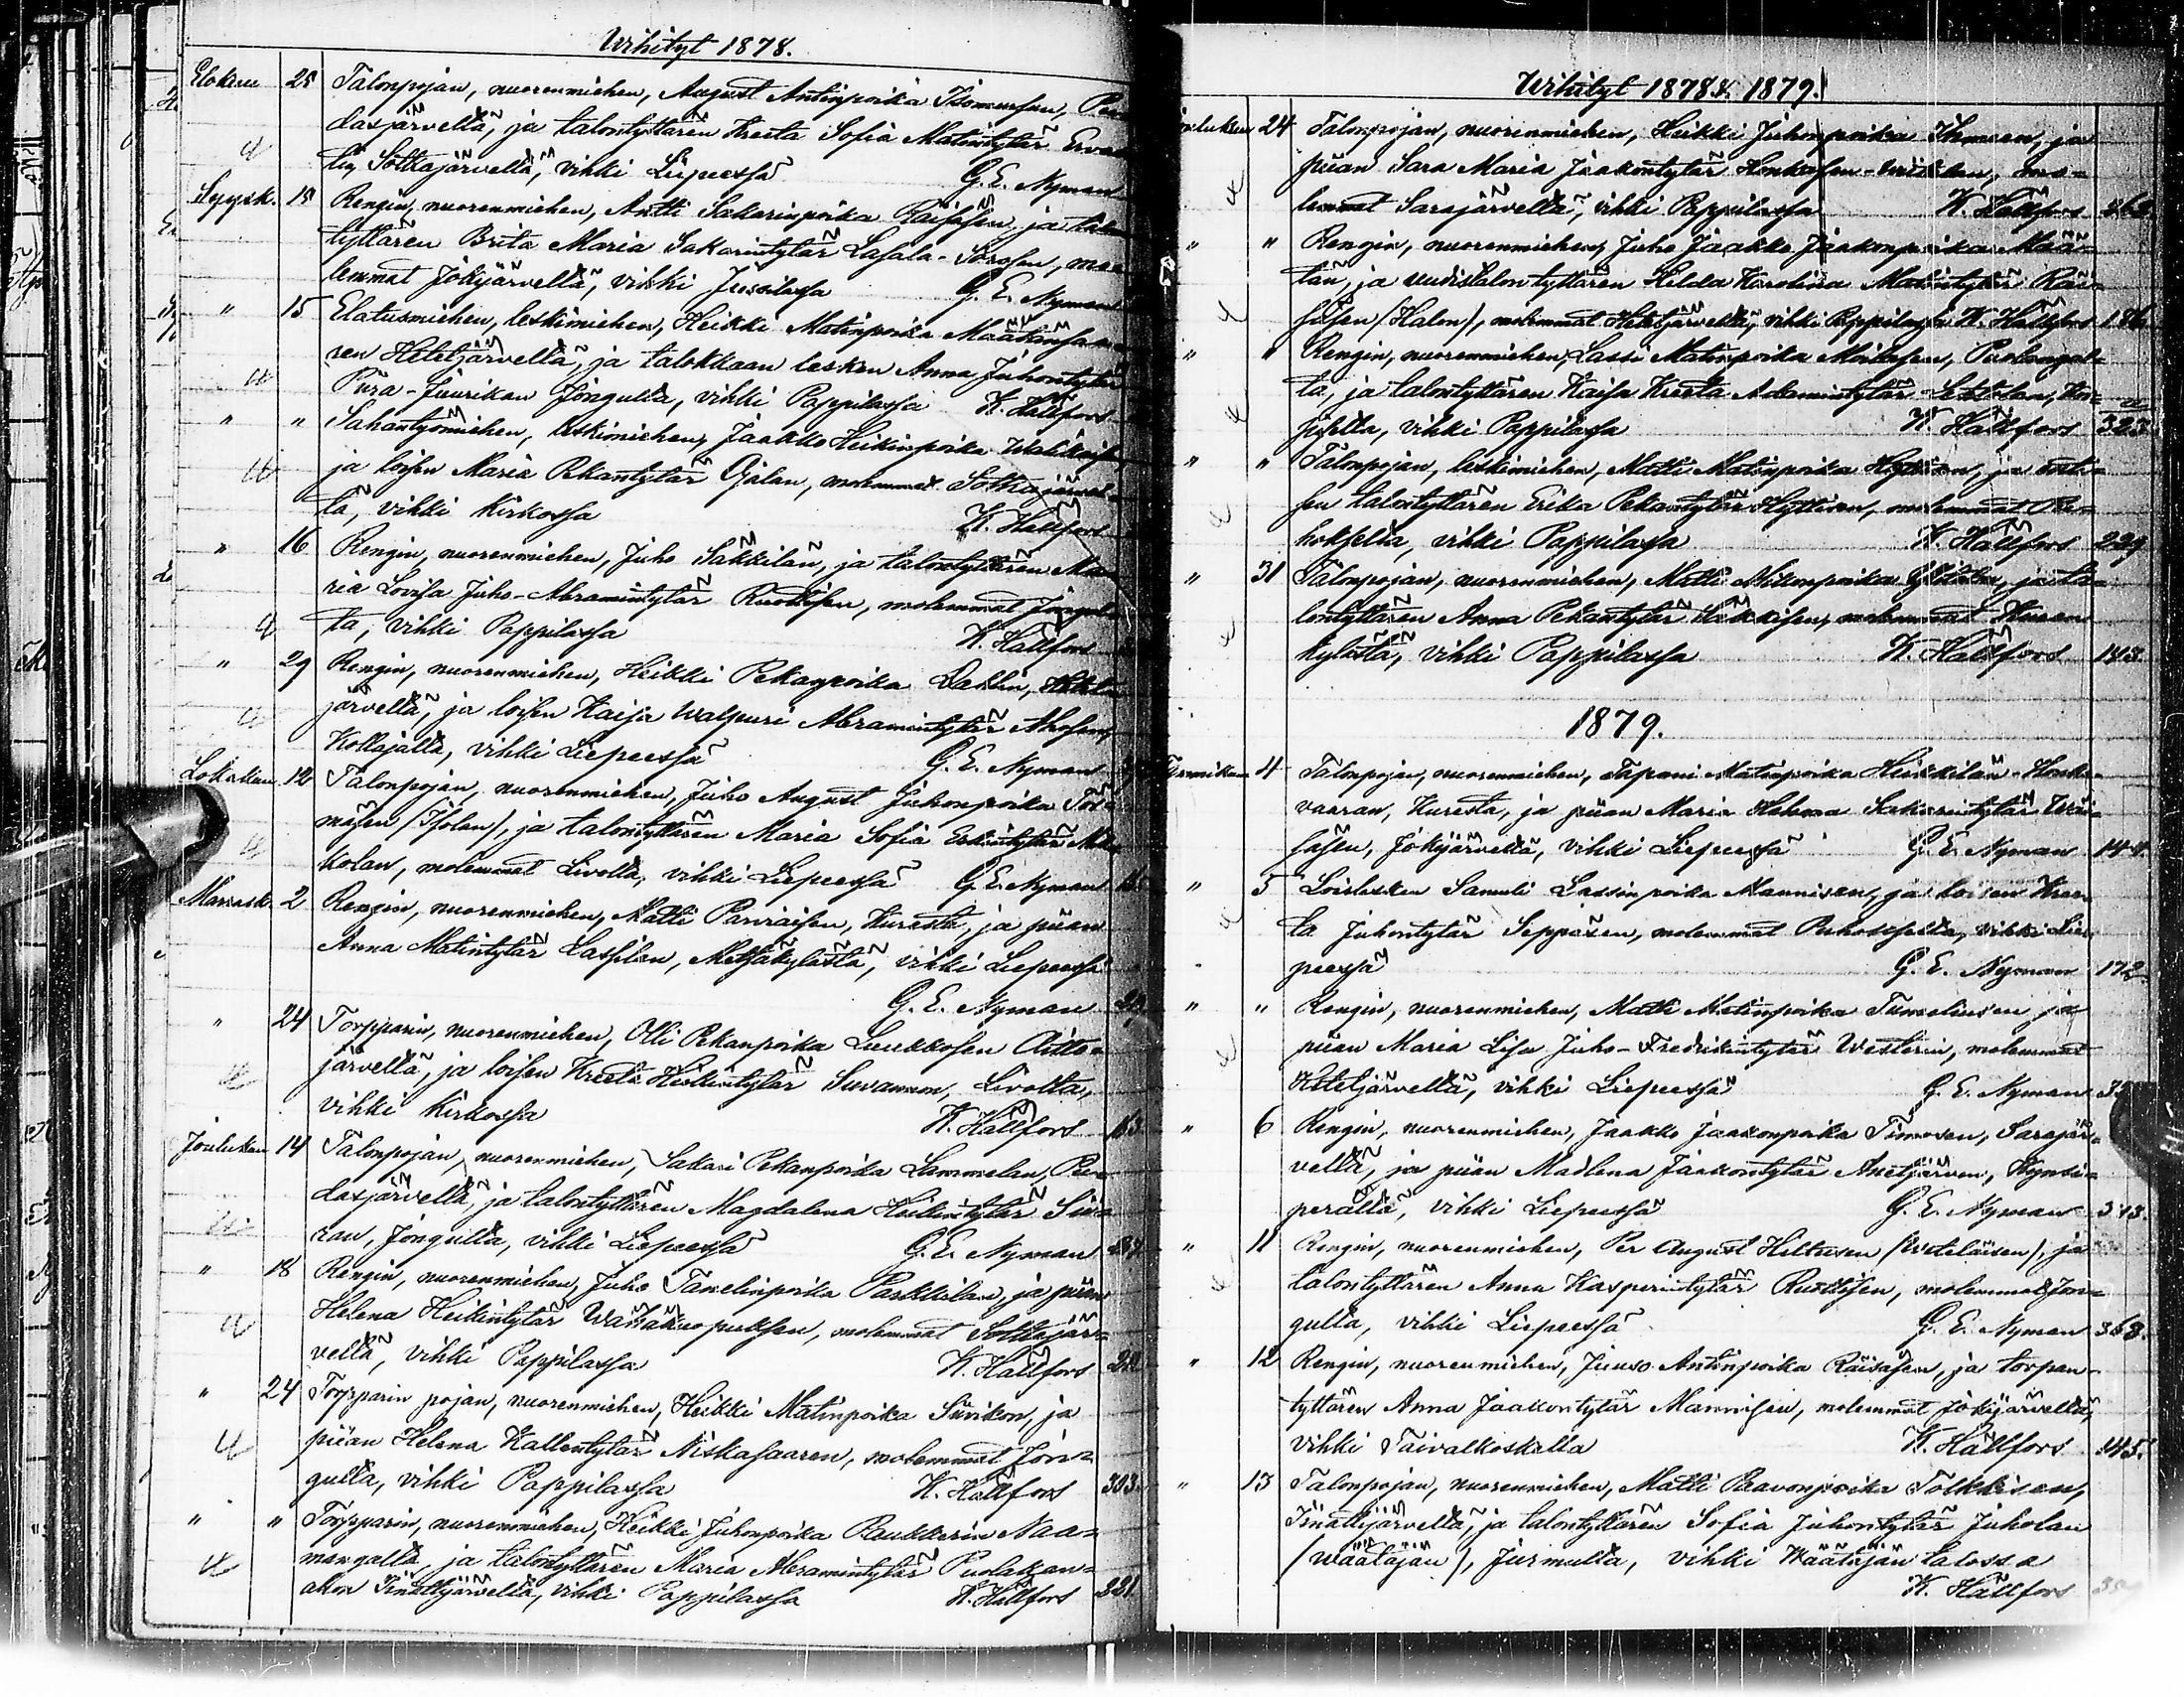 Wihityt 1878.
Elokuu 25 Talonpojan, nuorenmiehen, August Antinpoika
dasjärveltä, ja talontyttären Kreeta Sofia Matintytär
Sotkajärveltä, vihki Liepeessä G. E. Nyman
Syysk. 15 Rengin, nuorenmiehen, Antti Sakarinpoika Räisäsen, ja
tyttären Brita Maria Sakarintytär Lasala-Sorosen, mo-
lemmat Jokijärveltä, vihki Jussilassa G. E. Nyman
" 15 Elatusmiehen, leskimiehen, Heikki Matinpoika
ren Hetejärveltä, ja talokkaan lesken Anna Juhontytär
Piira-Juurikan Jongulta, vihki Pappilassa K. Hällfors
" " Sahantyömiehen, leskimiehen, Jaakko Heikinpoika
ja loisen Maria Pekantytär Ojalan, molemmat Sotkajärvel-
tä, vihki Kirkossa K. Hällfors
" 16 Rengin, nuorenmiehen, Juho Säkkilän, ja talontyttären Ma-
ria Lovisa Juho-Abramintytär Ruottisen, molemmat Jongul-
ta, vihki Pappilassa K. Hällfors
" 29 Rengin, nuorenmiehen, Heikki Pekanpoika Dahlin,
järveltä, ja loisen Kaisa Walpuri Abramintytär Ahosen,
Kollajalta, vihki Liepeessä G. E. Nyman
Lokakuu 12 Talonpojan, nuorenmiehen, Juho August Juhonpoika
mäsen (Isolan), ja talontyttären Maria Sofia Erkintytär
kolan, molemmat Livolta, vihki Liepeessä G. E. Nyman
Marrask. 2 Rengin, nuorenmiehen, Matti Parviaisen, Kuresta, ja piian
Anna Matintytär Lassilan, Metsäkylästä, vihki Liepeessä
G. E. Nyman
" 24 Torpparin, nuorenmiehen, Olli Pekanpoika Luukkosen
järveltä, ja loisen Kreeta Heikintytär Suvannon, Livolta,
vihki Kirkossa K. Hällfors 163
Joulukuu 14 Talonpojan, nuorenmiehen, Sakari Pekanpoika Lammelan, Pu-
dasjärveltä, ja talontyttären Magdalena Heikintytär Sii-
ran, Jongulta, vihki Liepeessä G. E. Nyman
" 18 Rengin, nuorenmiehen, Juho Tanelinpoika Parkkilan, ja piian
Helena Heikintytär molemmat Sotkajär-
veltä, vihki Pappilassa K. Hällfors
" 24 Torpparin pojan, nuorenmiehen, Heikki Matinpoika Siivikon, ja
piian Helena Kallentytär Niskasaaren, molemmat Jon-
gulta, vihki Pappilassa K. Hällfors 303.
" " Torpparin, nuorenmiehen, Heikki Juhonpoika Raukkerin Naa-
mangalta, ja talontyttären Maria Abramintytär Puolakan-
ahon Iinattijärveltä, vihki Pappilassa K. Hällfors 221
Wihityt 1878 & 1879.
Joulukuu 24 Talonpojan, nuorenmiehen, Heikki Juhonpoika Ihmeen, ja
piian Sara Maria Jaakontytär mo-
lemmat Sarajärveltä, vihki Pappilassa K. Hällfors
" " Rengin, nuorenmiehen, Juho Jaakko Jaakonpoika Määt-
tän, ja uudistalontyttären Hilda Karolina Matintytär Räi-
säsen (Halon), molemmat Hetejärveltä, vihki Pappilassa K. Hällfors 186
" " Rengin, nuorenmiehen, Lassi Matinpoika Moilasen, Puolangal-
ta, ja talontyttären Kaisa Kreeta Adamintytär
vihki Pappilassa K. Hällfors 323
" " Talonpojan, leskimiehen, Matti Matinpoika ja
sen talontyttären Erika Pekantytär Hyttisen, molemmat Pu-
hokselta, vihki Pappilassa K. Hällfors 229
" 31 Talonpojan, nuorenmiehen, Matti Mikonpoika ja ta-
lontyttären Anna Pekantytär molemmat Kuren
kylästä, vihki Pappilassa K. Hällfors 143
1879.
Tammikuu 4 Talonpojan, nuorenmiehen, Tapani Matinpoika Heikkilän-Honka-
vaaran, Kuresta, ja piian Maria Helena Sakarintytär Wäi-
säsen, Jokijärveltä, vihki Liepeessä G. E. Nyman 144.
" 5 Loislesken Samuli Lassinpoika Mannisen, ja loisen Kree-
ta Juhontytär Seppäsen, molemmat Puhokselta, vihki Lie-
peessä G. E. Nyman 172
" " Rengin, nuorenmiehen, Matti Matinpoika Tumeliusen ja
piian Maria Lisa Juho-Fredrikintytär Westerin, molemmat
Hetejärveltä, vihki Liepeessä G. E. Nyman
" 6 Rengin, nuorenmiehen, Jaakko Jaakonpoika Timosen, Sarajär-
veltä, ja piian Madlena Jaakontytär Anetjärven, Kynsi-
perältä, vihki Liepeessä G. E. Nyman 313.
" 11 Rengin, nuorenmiehen, Per August Hiltusen (Weteläisen), ja
talontyttären Anna Kasperintytär Ruottisen, molemmat Jon-
gulta, vihki Liepeessä G. E. Nyman 368.
" 12 Rengin, nuorenmiehen, Juuso Antinpoika Räisäsen, ja torpan-
tyttären Anna Jaakontytär Mannisen, molemmat Jokijärveltä,
vihki Taivalkoskella K. Hällfors 145.
" 13 Talonpojan, nuorenmiehen, Matti Paavonpoika Tolkkisen,
Iinattijärveltä, ja talontyttären Sofia Juhontytär Juholan
(Wäätäjän), Jurmulta, vihki Wäätäjän talossa
K. Hällfors